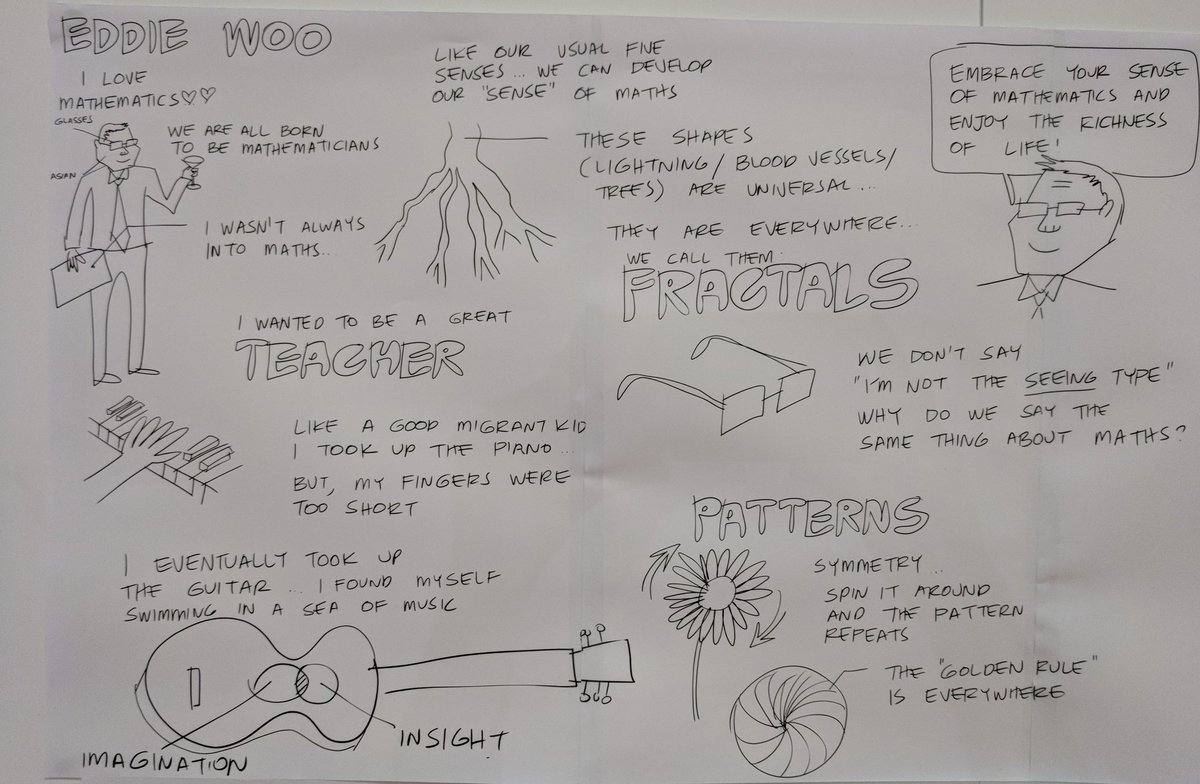 EDDIE WOO
I LOVE
MATHEMATICS♡♡
GLASSES
ASIAN
WE ARE ALL BORN
TO BE MATHEMATICIANS
I WASN'T ALWAYS
INTO MATHS...
I WANTED TO BE A GREAT
TEACHER
LIKE A GOOD MIGRANT KID
I TOOK UP THE PIANO...
BUT, MY FINGERS WERE
TOO SHORT
I EVENTUALLY TOOK UP
THE GUITAR... I FOUND MYSELF
SWIMMING IN A SEA OF MUSIC
IMAGINATION
INSIGHT
LIKE OUR USUAL FIVE
SENSES... WE CAN DEVELOP
OUR "SENSE" OF MATHS
THESE SHAPES
(LIGHTNING/BLOOD VESSELS/
TREES) ARE UNIVERSAL...
THEY ARE EVERYWHERE...
WE CALL THEM
FRACTALS
EMBRACE YOUR SENSE
OF MATHEMATICS AND
ENJOY THE RICHNESS
OF LIFE!
WE DON'T SAY
"I'M NOT THE SEEING TYPE"
WHY DO WE SAY THE
SAME THING ABOUT MATHS?
PATTERNS
SYMMETRY...
SPIN IT AROUND
AND THE PATTERN
REPEATS
THE "GOLDEN RULE"
IS EVERYWHERE